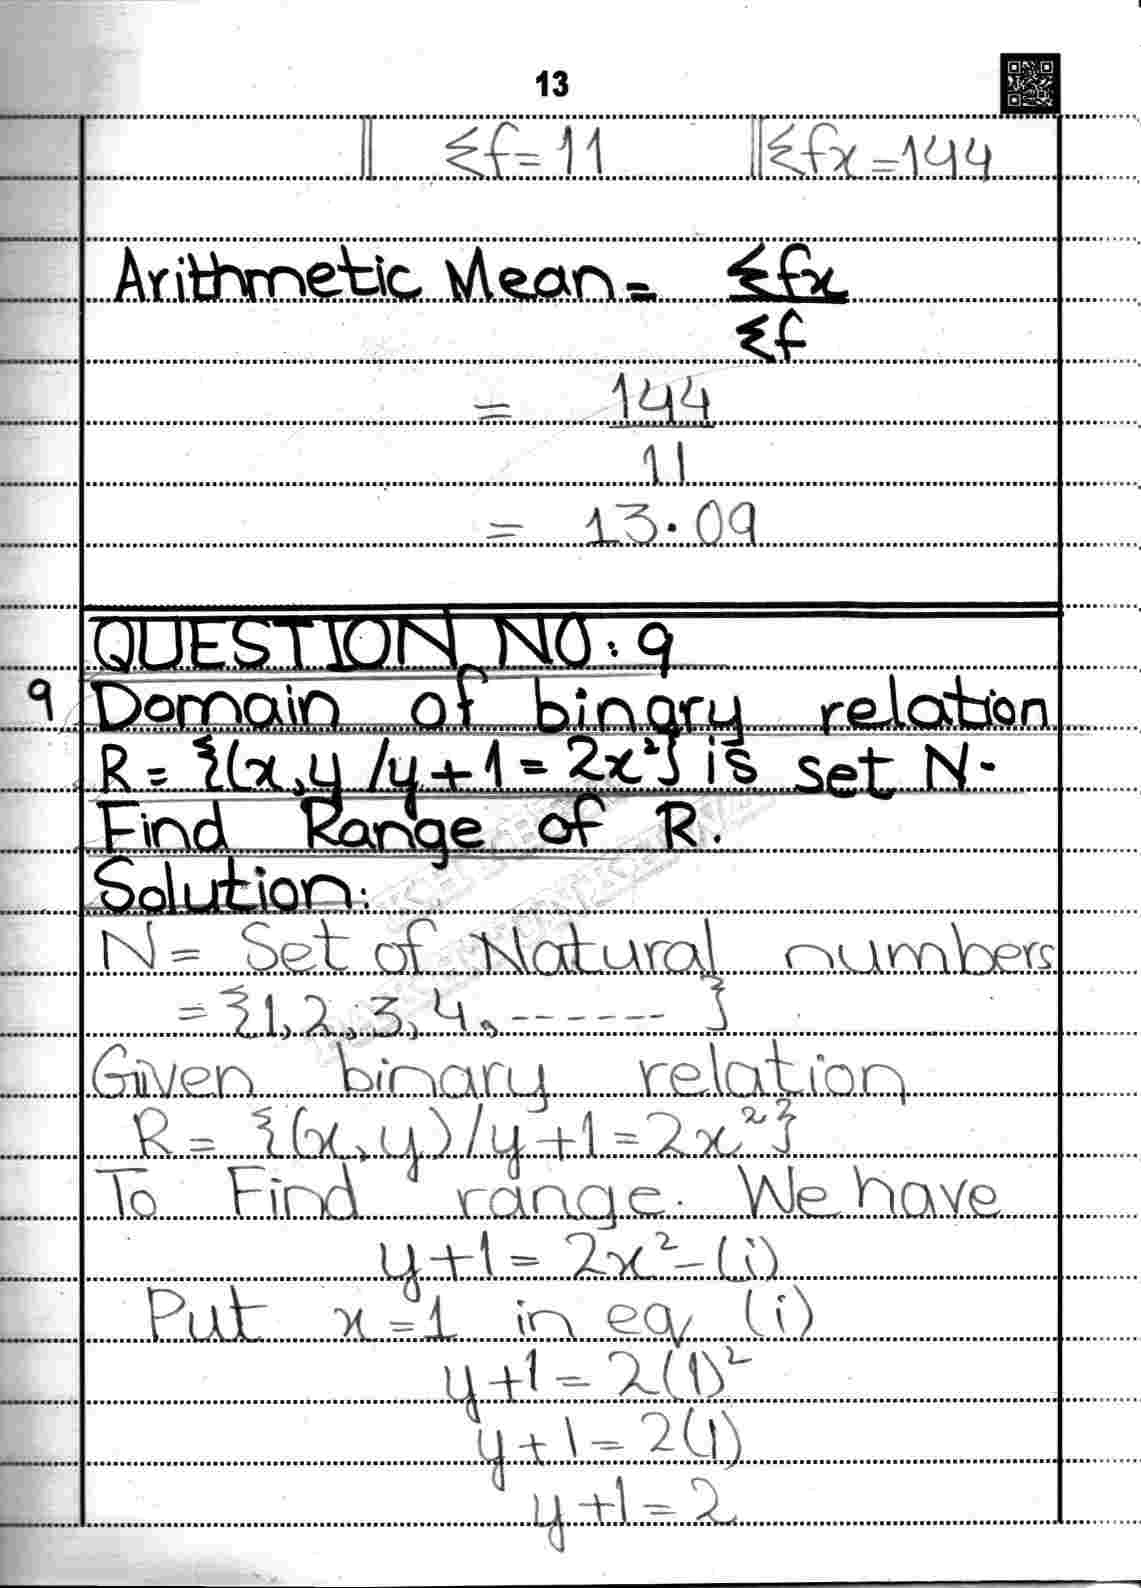 13
Σf=11 Σfx=144
Arithmetic Mean= Σfx
Σf
= 144
11
= 13.09
QUESTION NO: 9
9 Domain of binary relation
R= {(x,y /y+1=2x²} is set N.
Find Range of R.
Solution:
N= Set of Natural numbers
={1,2,3,4,------ }
Given binary relation
R= {(x,y)/y+1=2x²}
To Find range. We have
y+1=2x²-(i)
Put x=1 in eq (i)
y+1=2(1)²
y+1=2(1)
y+1=2